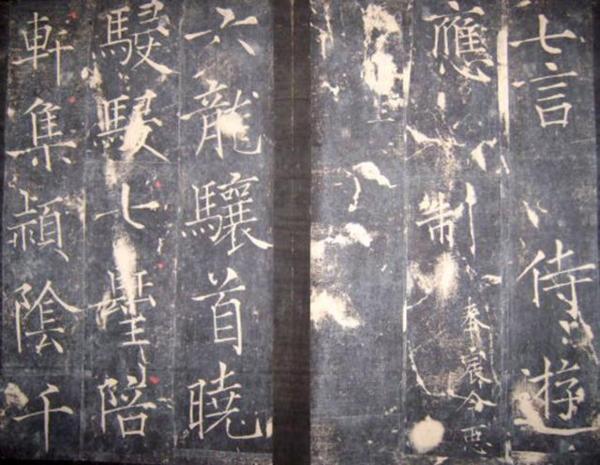 七言 侍遊
應制 奉宸令𢘑
六龍驤首曉
駸駸七聖陪
軒集潁陰千